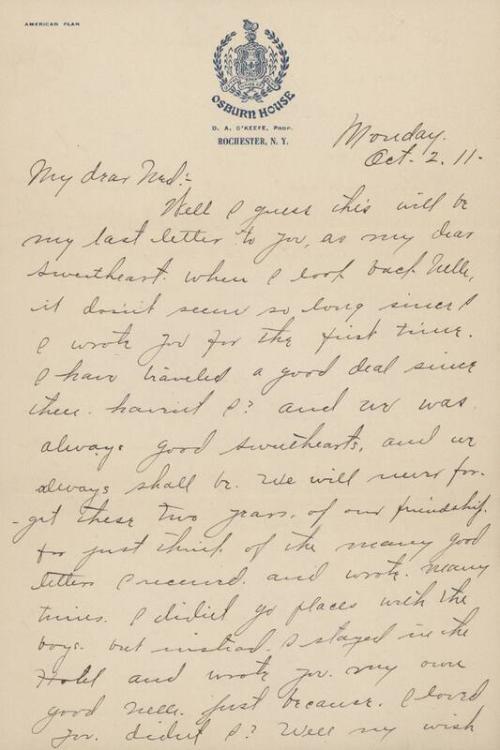 AMERICAN PLAN
OSBURN HOUSE
D. A. O'KEEFE, PROP.
ROCHESTER, N. Y.
Monday.
Oct. 2. 11.
My dear Ned:-
Well I guess this will be
my last letter to you, as my dear
sweetheart. when I look back Nelle,
it don't seem so long since I
I wrote you for the first time.
I have traveled a good deal since
then. havint I? and we was
always good sweethearts, and we
always shall be. We will never for-
-get these two years. of our friendship.
for just think of the many good
letters I received. and wrote. many
times. I did'nt go places with the
boys. but instead. I stayed in the
Hotel and wrote you. my own
good Nelle. just because. I loved
you. did'nt I? Well my wish